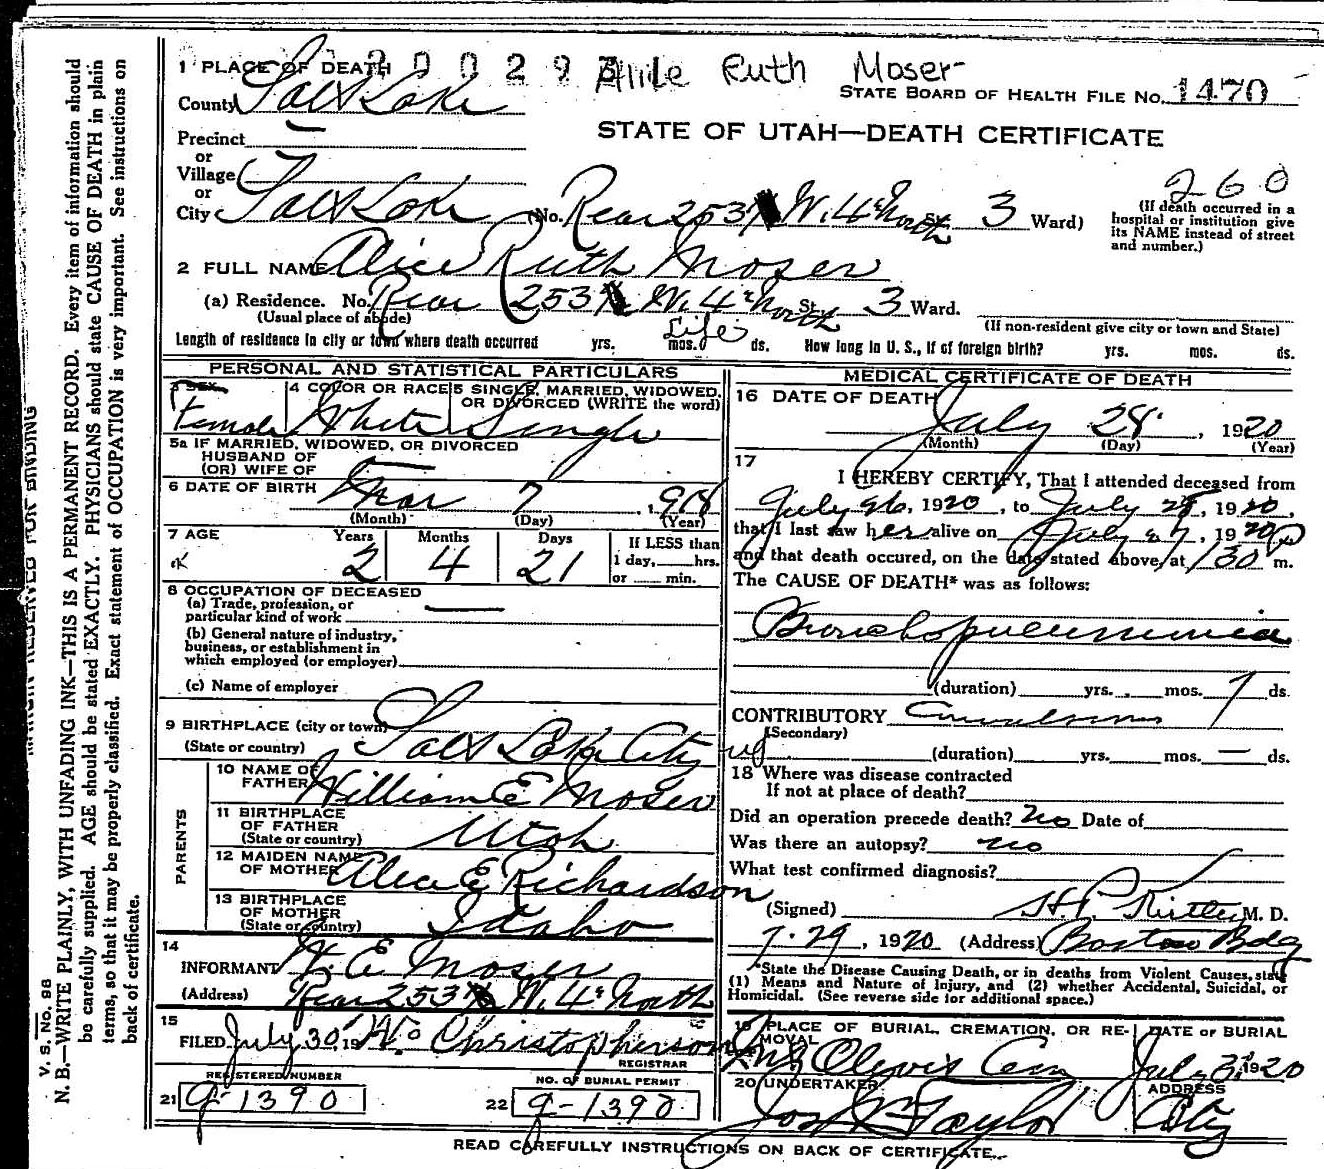 1 PLACE OF DEATH 2 0 0 2 9 Ruth Moser
County Salt Lake STATE BOARD OF HEALTH FILE No. 1470
Precinct —
STATE OF UTAH—DEATH CERTIFICATE
or
Village
or
260
City Salt Lake (No. Rear 253 W. 4th North St. 3 Ward)
(If death occurred in a hospital or institution give its NAME instead of street and number.)
2 FULL NAME Alice Ruth Moser
(a) Residence. No. Rear 253 W. 4th North St. 3 Ward.
(Usual place of abode) (If non-resident give city or town and State)
Length of residence in city or town where death occurred yrs. mos. ds. Life How long in U. S., if of foreign birth? yrs. mos. ds.
PERSONAL AND STATISTICAL PARTICULARS
3 SEX Female
4 COLOR OR RACE White
5 SINGLE, MARRIED, WIDOWED, OR DIVORCED (WRITE the word) Single
5a IF MARRIED, WIDOWED, OR DIVORCED
HUSBAND OF
(OR) WIFE OF —
6 DATE OF BIRTH Mar 7, 1918
(Month) (Day) (Year)
7 AGE Years Months Days If LESS than
2 4 21 1 day,____hrs.
or ____ min.
8 OCCUPATION OF DECEASED
(a) Trade, profession, or
particular kind of work —
(b) General nature of industry,
business, or establishment in
which employed (or employer)
(c) Name of employer
9 BIRTHPLACE (city or town)
(State or country) Salt Lake City
PARENTS
10 NAME OF FATHER William E Moser
11 BIRTHPLACE OF FATHER (State or country) Utah
12 MAIDEN NAME OF MOTHER Alice E Richardson
13 BIRTHPLACE OF MOTHER (State or country) Idaho
14
INFORMANT W. E. Moser
(Address) Rear 253 W. 4th North
15
FILED July 30, 19 Christopherson
REGISTRAR
REGISTERED NUMBER
21 9-1390
NO. OF BURIAL PERMIT
22 9-1390
MEDICAL CERTIFICATE OF DEATH
16 DATE OF DEATH July 28, 1920
(Month) (Day) (Year)
17
I HEREBY CERTIFY, That I attended deceased from
July 26, 1920, to July 28, 1920,
that I last saw her alive on July 27, 1920
and that death occured, on the date stated above, at 130 P m.
The CAUSE OF DEATH* was as follows:
Bronchopneumonia
(duration) yrs. mos. 7 ds.
CONTRIBUTORY Convulsions
(Secondary)
(duration) yrs. mos. — ds.
18 Where was disease contracted
If not at place of death?
Did an operation precede death? no Date of
Was there an autopsy? no
What test confirmed diagnosis?
(Signed) H.P. Kirtley M. D.
7-29, 1920 (Address) Boston Bdg
*State the Disease Causing Death, or in deaths from Violent Causes, state
(1) Means and Nature of Injury, and (2) whether Accidental, Suicidal, or
Homicidal. (See reverse side for additional space.)
19 PLACE OF BURIAL, CREMATION, OR RE-
MOVAL Mt Olivet Cem
DATE OF BURIAL July 31 1920
20 UNDERTAKER Jos Wm Taylor
ADDRESS City
READ CAREFULLY INSTRUCTIONS ON BACK OF CERTIFICATE.
MARGIN RESERVED FOR BINDING
V. S. No. 98
N. B.—WRITE PLAINLY, WITH UNFADING INK—THIS IS A PERMANENT RECORD. Every item of information should
be carefully supplied. AGE should be stated EXACTLY. PHYSICIANS should state CAUSE OF DEATH in plain
terms, so that it may be properly classified. Exact statement of OCCUPATION is very important. See instructions on
back of certificate.